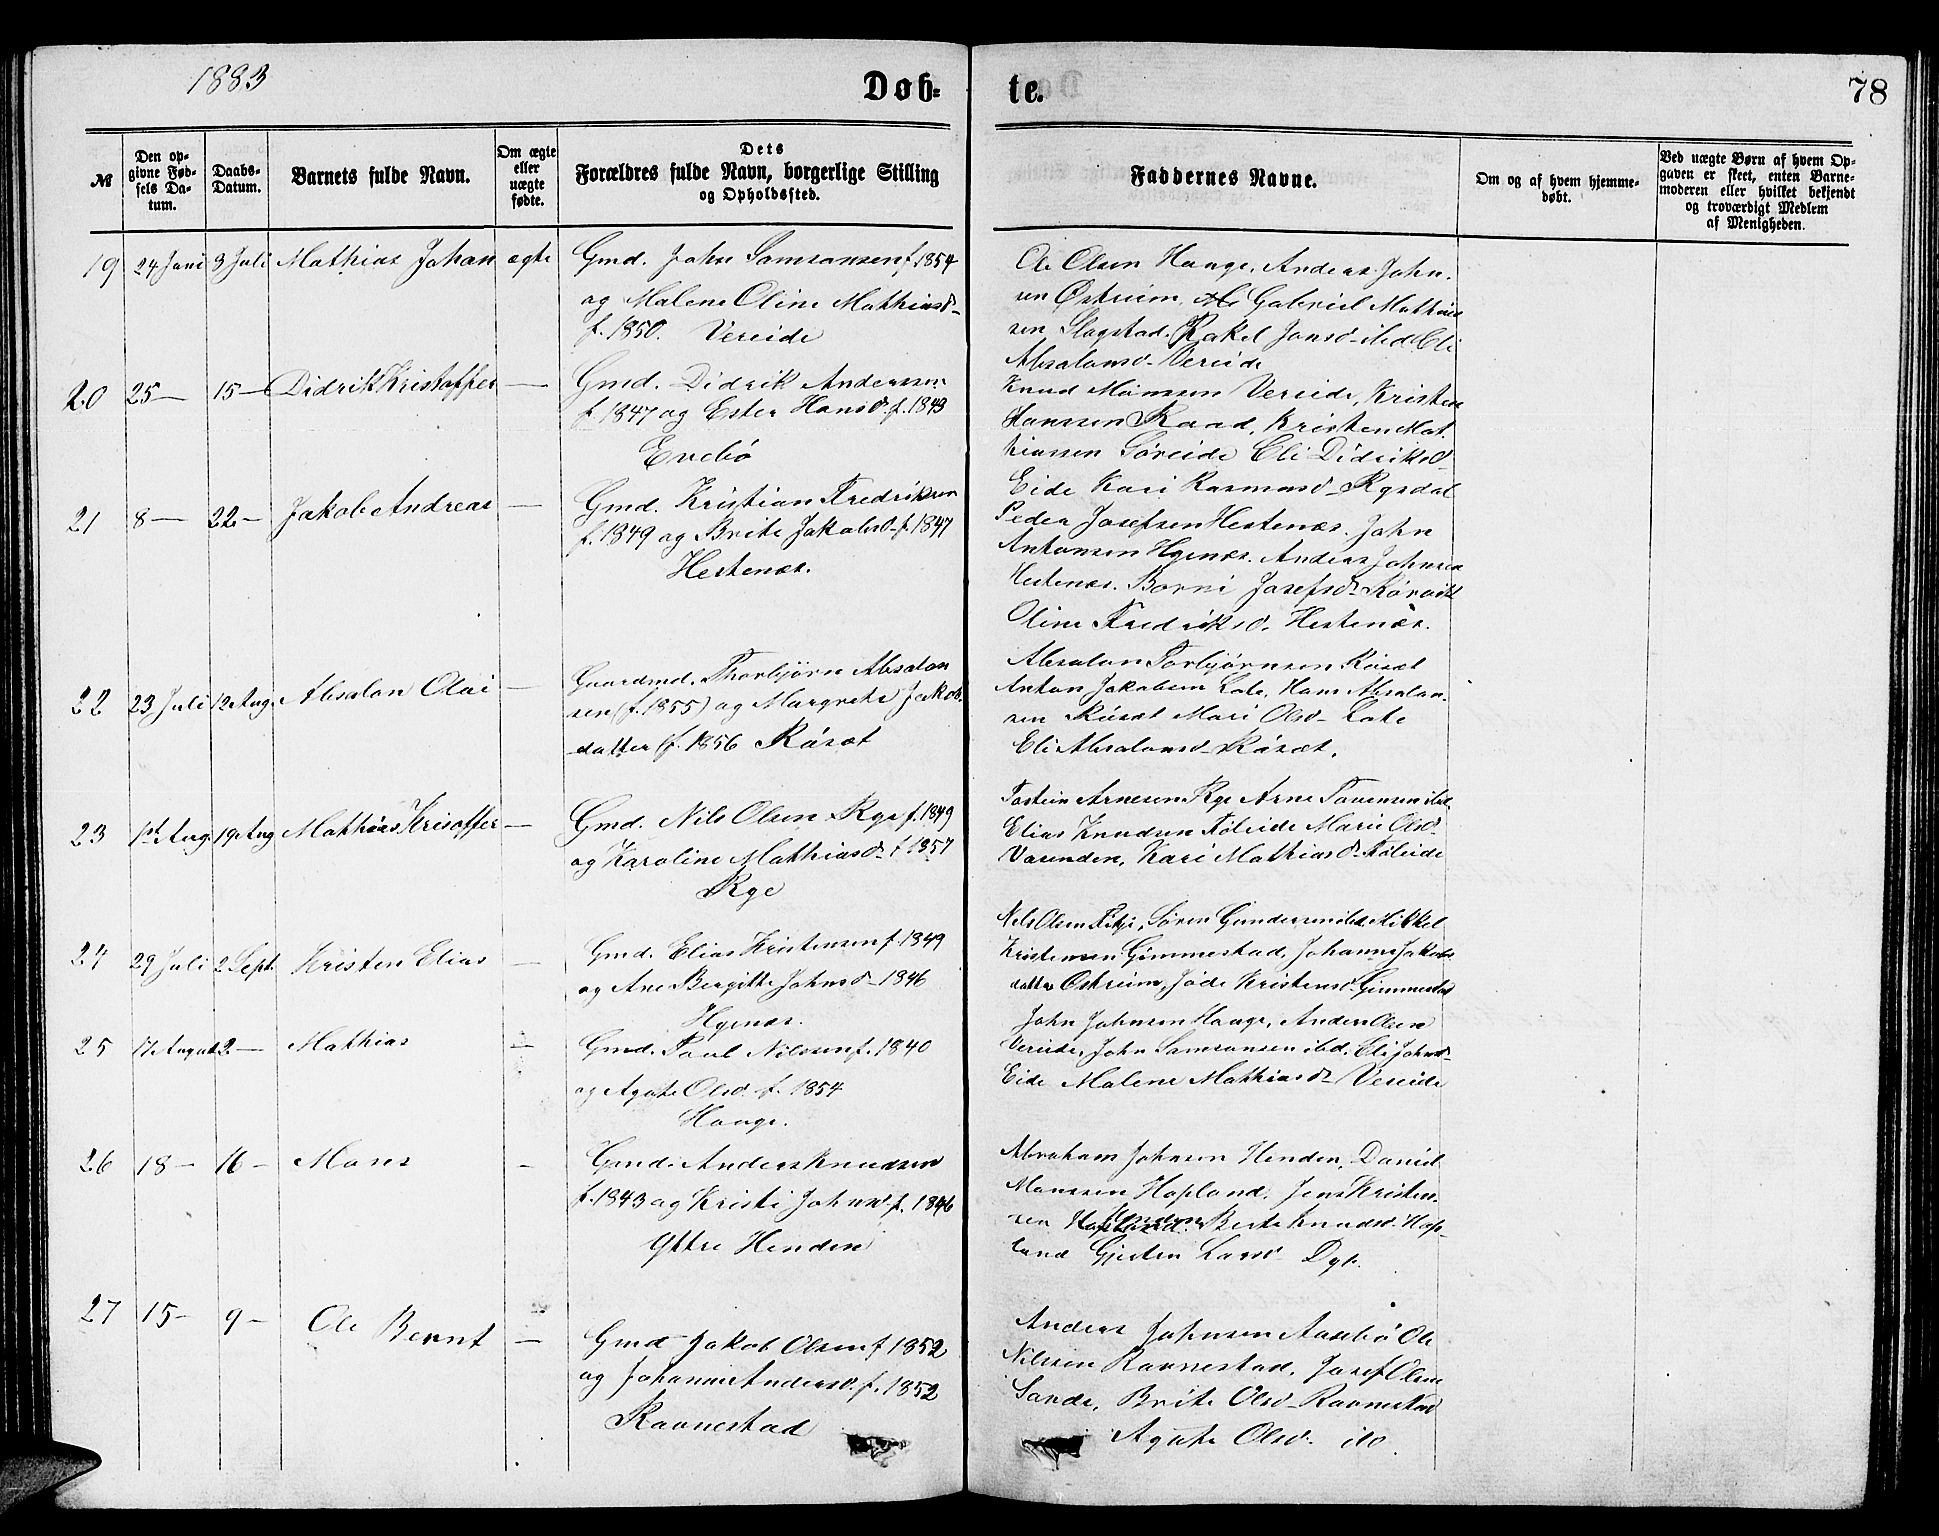 1883
Døb-
te.
78
№
Den op-
givne Fød-
sels Da-
tum.
Daabs-
Datum.
Barnets fulde Navn.
Om ægte
eller
uægte
fødte.
Dets
Forældres fulde Navn, borgerlige Stilling
og Opholdssted.
Faddernes Navne.
Om og af hvem hjemme-
døbt.
Ved uægte Børn af hvem Op-
gaven er skeet, enten Barne-
moderen eller hvilket bekjendt
og troværdigt Medlem
af Menigheden.
19 24 Juni 8 Juli Mathias Johan ægte
Gmd. John Samsonsen f. 1854
og Malene Oline Mathiasd-
f. 1850. Vereide
Ole Olsen Hauge, Anders John-
sen Østreim, Gabriel Mathias
sen Slagstad. Rakel Jonsd- ibd. Eli
Absalonsd- Vereide
20 25 — 15 — Didrik Kristoffer —
Gmd. Didrik Anderssen
f. 1847 og Ester Hansd. f. 1843
Enebø
Knud Monssen Vereide, Kristen
Hanssen Raad, Kristen Mat-
hiassen Søreide Eli Didriksd-
Eide Kari Rasmusd- Rysdal
21 8 — 22 — Jakob Andreas —
Gmd. Kristian Fredriksen
f. 1849 og Brite Jakobsd- f. 1847
Hestenæs.
Peder Josefsen Hestenæs. John
Antonsen Hyenæs. Anders Johnsen
Hestenæs. Borni Josefsd-
Oline Fredriksd. Hestenæs.
22 23 Juli 12 Aug. Absalon Olai —
Gaardmd. Thorbjørn Absalon
sen (f. 1855) og Margrete Jakob-
datter (f. 1856 Røsæt
Absalon Torbjørnsen Røsæt
Anton Jakobsen Lote, Hans Absalon-
sen Røsæt Mari Olsd- Lote
Eli Absalonsd- Røsæt.
23 1st Aug. 19 Aug Mathias Krisoffer —
Gmd. Nils Olsen Rye f. 1849
og Karoline Mathiasd- f. 1857
Rye
Tostein Arnesen Rye Arne ibd.
Elias Knudsen Føleide Marie Olsd-
Vasenden, Kari Mathiasd- Føleide
24 29 Juli 2 Sept. Kristen Elias —
Gmd. Elias Kristensen f. 1849
og Ane Bergitte Johnsd- 1846
Hyenæs.
Nils Olsen Fitje, Søren Gundersen ibd. Mikkel
Kristensen Gimmestad, Johanne Jakobs
datter Østreim, Jøde Kristensd- Gimmestad
25 17 August 2 — Mathias —
Gmd. Paul Nilssen f. 1840
og Agate Olsd. f. 1854
Hauge.
John Johnsen Hauge, Anders Olsen
Vereide, John Samsonsen ibd. Eli Johnsd-
Eide Malene Mathiasd- Vereide
26 18 — 16 — Mons —
Gmd. Anders Knudsen
f. 1843 og Kristi Johnsd. f. 1846
Yttre Henden
Abraham Johnsen Henden, Daniel
Monssen Hopland. Jens Kristen-
sen Henden Berte Knudsd. Hop-
land Gjerten Larsd- Dyp.
27 15 — 9 — Ole Bernt —
Gmd Jakob Olsen f 1852
og Johanne Andersd. f. 1852
Ravnestad
Anders Johnsen Aasebø Ole
Nilssen Ravnestad, Josef Olsen
Sande, Brite Olsd- Ravnestad
Agate Olsd- ibd.